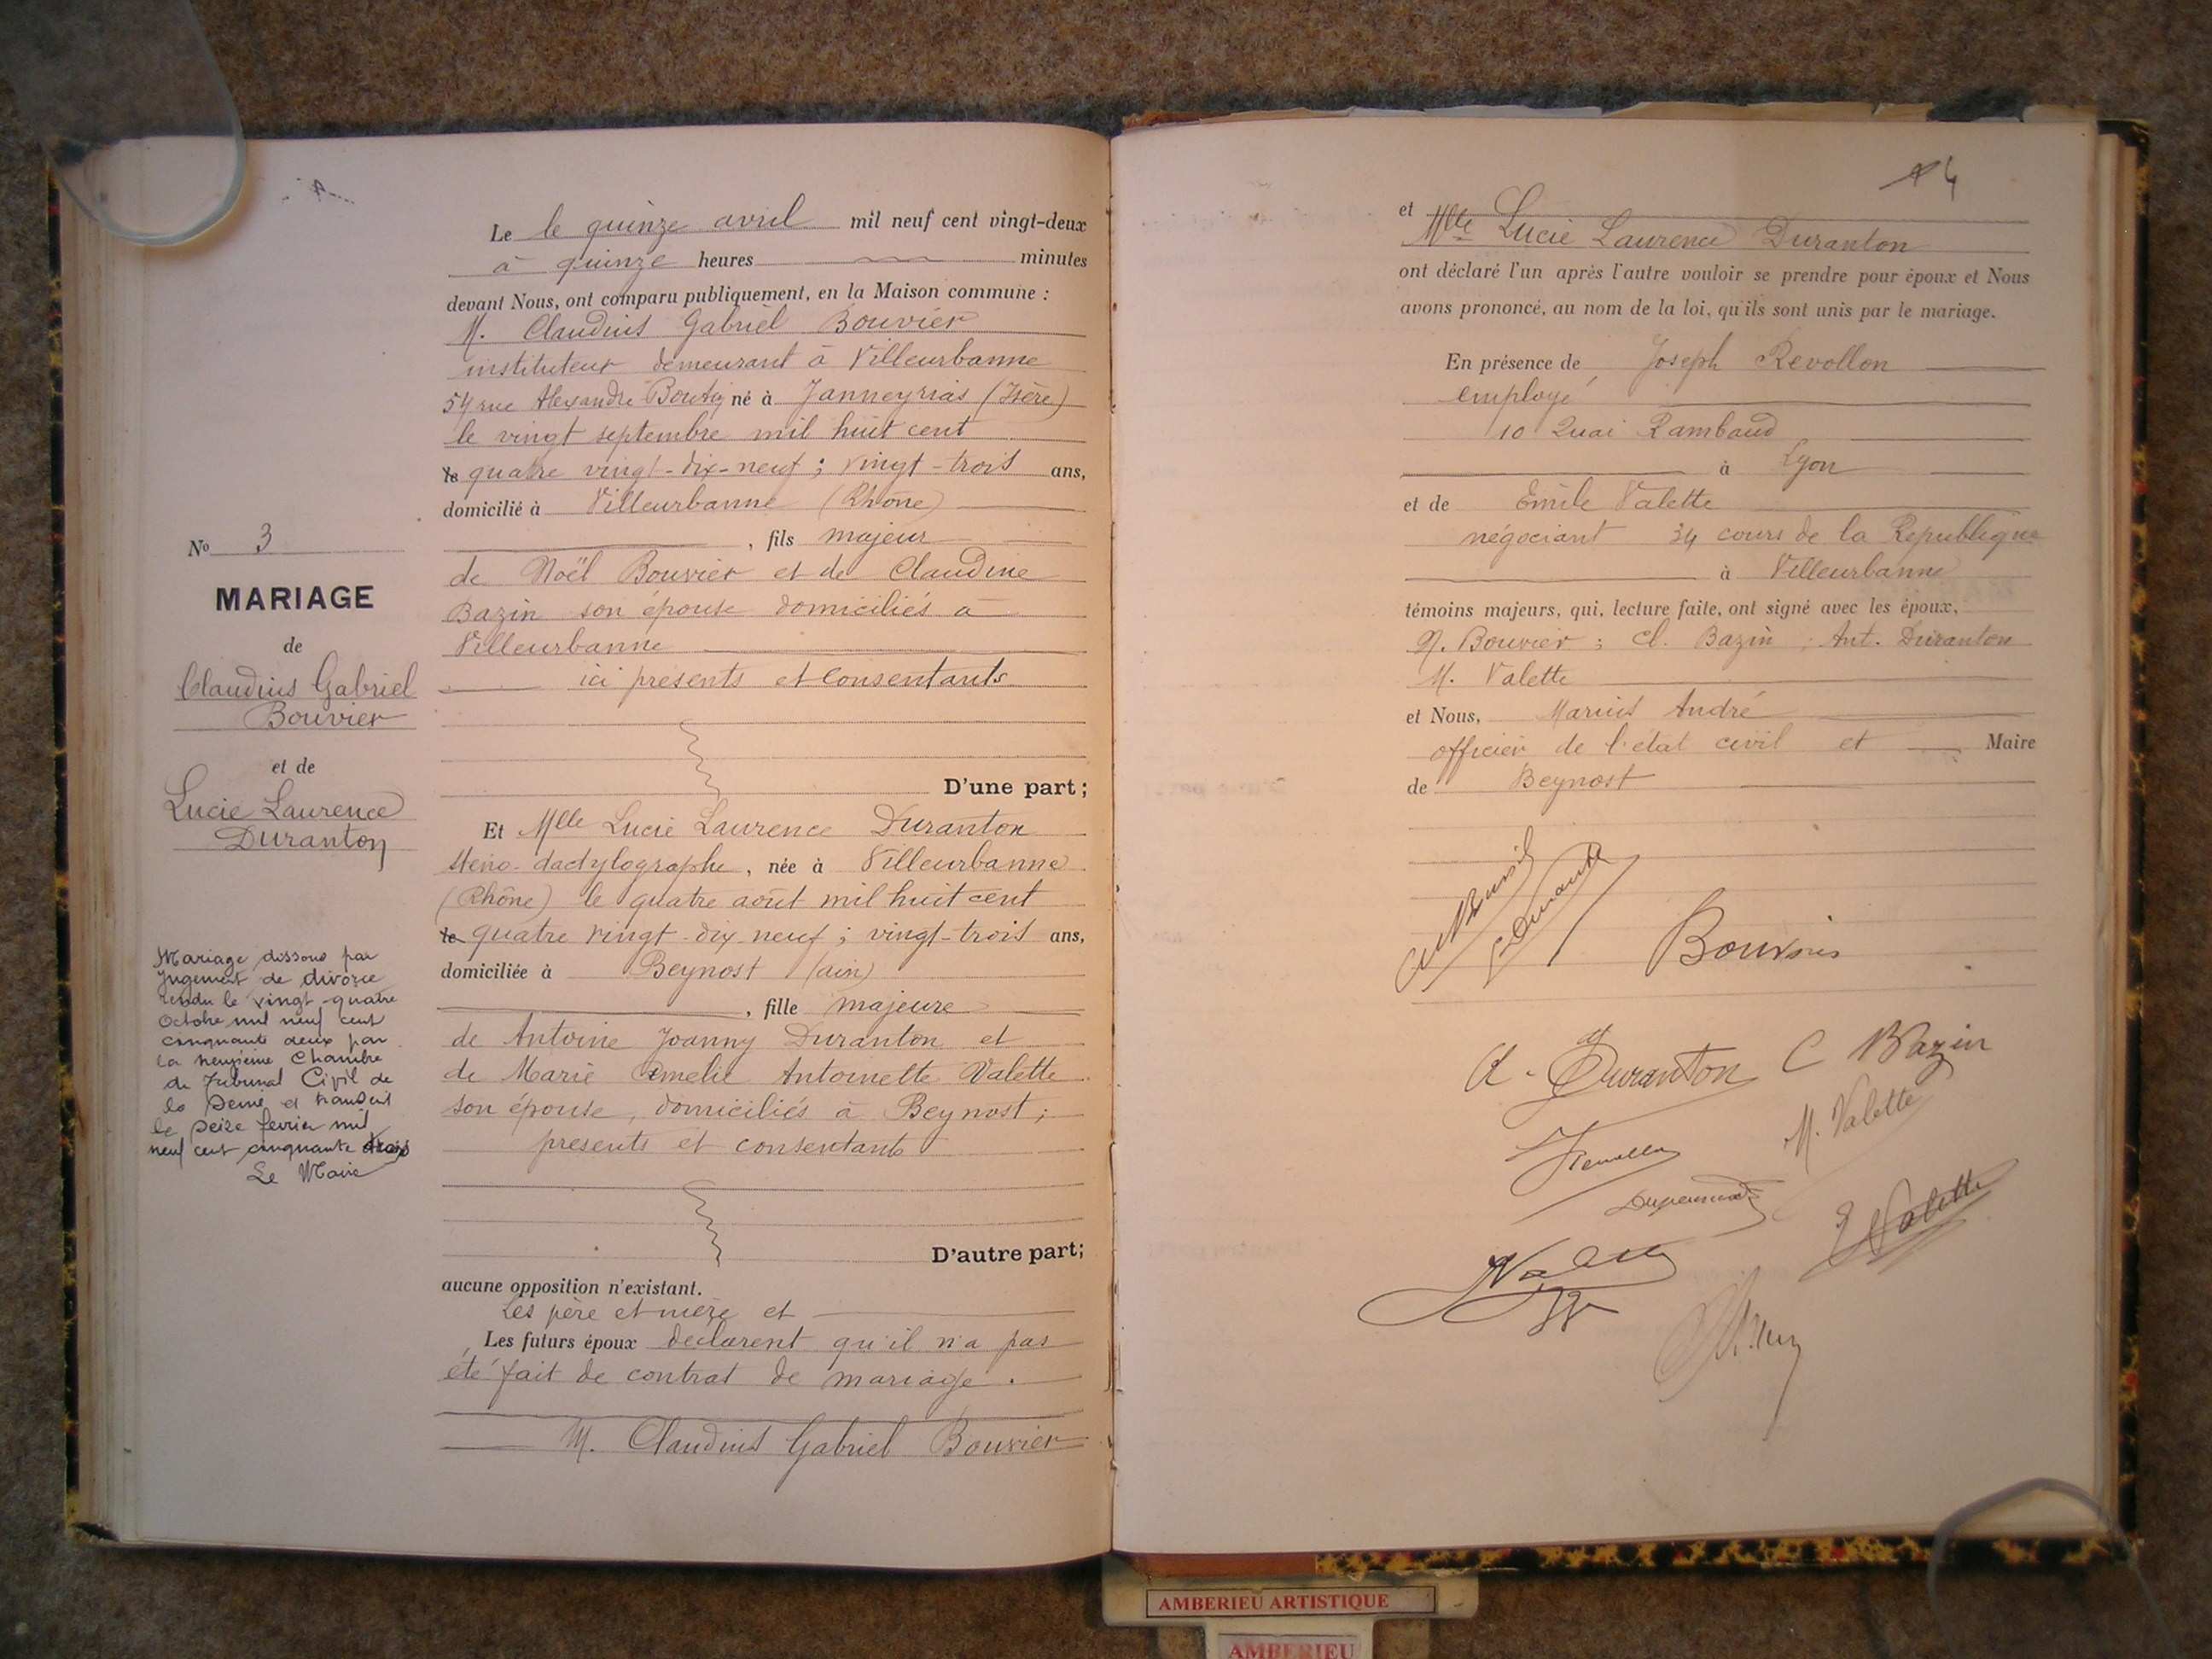 Le le quinze avril mil neuf cent vingt-deux
à quinze heures minutes
devant Nous, ont comparu publiquement, en la Maison commune :
M. Claudius Gabriel Bouvier
instituteur demeurant à Villeurbanne
54 rue Alexandre Boutin né à Janneyrias (Isère)
le vingt septembre mil huit cent
le quatre vingt-dix-neuf ; vingt-trois ans,
domicilié à Villeurbanne (Rhône)
, fils majeur
de Noël Bouvier et de Claudine
Bazin son épouse domiciliés à
Villeurbanne
ici présents et consentants
D'une part;
Et Mlle Lucie Laurence Duranton
sténo-dactylographe, née à Villeurbanne
(Rhône) le quatre août mil huit cent
le quatre vingt-dix neuf ; vingt-trois ans,
domiciliée à Beynost (ain)
, fille majeure
de Antoine Joanny Duranton et
de Marie Amelie Antoinette Valette
son épouse, domiciliés à Beynost ;
présents et consentants
D'autre part;
aucune opposition n'existant.
Les père et mère et
Les futurs époux déclarent qu'il n'a pas
été fait de contrat de mariage.
M. Claudius Gabriel Bouvier
No 3
MARIAGE
de
Claudius Gabriel
Bouvier
et de
Lucie Laurence
Duranton
Mariage dissous par
jugement de divorce
rendu le vingt-quatre
Octobre mil neuf cent
cinquante deux par
la neuvième Chambre
du Tribunal Civil de
la Seine et transcrit
le seize février mil
neuf cent cinquante trois
Le Maire
4
et Mlle Lucie Laurence Duranton
ont déclaré l'un après l'autre vouloir se prendre pour époux et Nous
avons prononcé, au nom de la loi, qu'ils sont unis par le mariage.
En présence de Joseph Revollon
employé
10 Quai Rambaud
à Lyon
et de Emile Valette
négociant 34 cours de la République
à Villeurbanne
témoins majeurs, qui, lecture faite, ont signé avec les époux,
N. Bouvier ; Cl. Bazin ; Ant. Duranton
M. Valette
et Nous, Marius André
officier de l'état civil et Maire
de Beynost
Bouvier
A. Duranton C Bazin
M. Valette
E Valette
AMBERIEU ARTISTIQUE
AMBERIEU